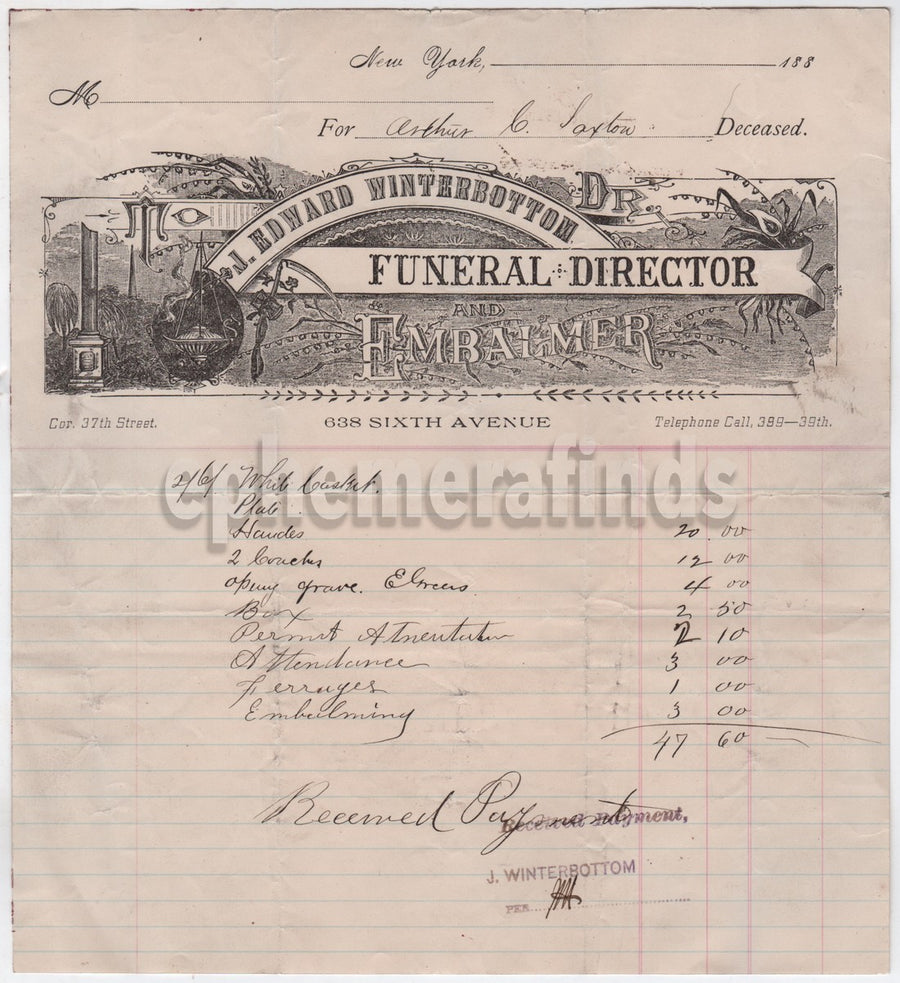 New York, 188
M
For Arthur C. Saxton Deceased.
To J. EDWARD WINTERBOTTOM DR.
FUNERAL DIRECTOR
AND
EMBALMER
Cor. 37th Street. 638 SIXTH AVENUE Telephone Call, 389—39th.
ephemerafinds
2/6/ White Casket.
Plate
Handles 20 00
2 Coaches 12 00
opening grave. 4 00
Box 2 50
Permit 2 10
Attendance 3 00
Ferrages 1 00
Embalming 3 00
47 60
Received Payment
Received Payment,
J. WINTERBOTTOM
PER